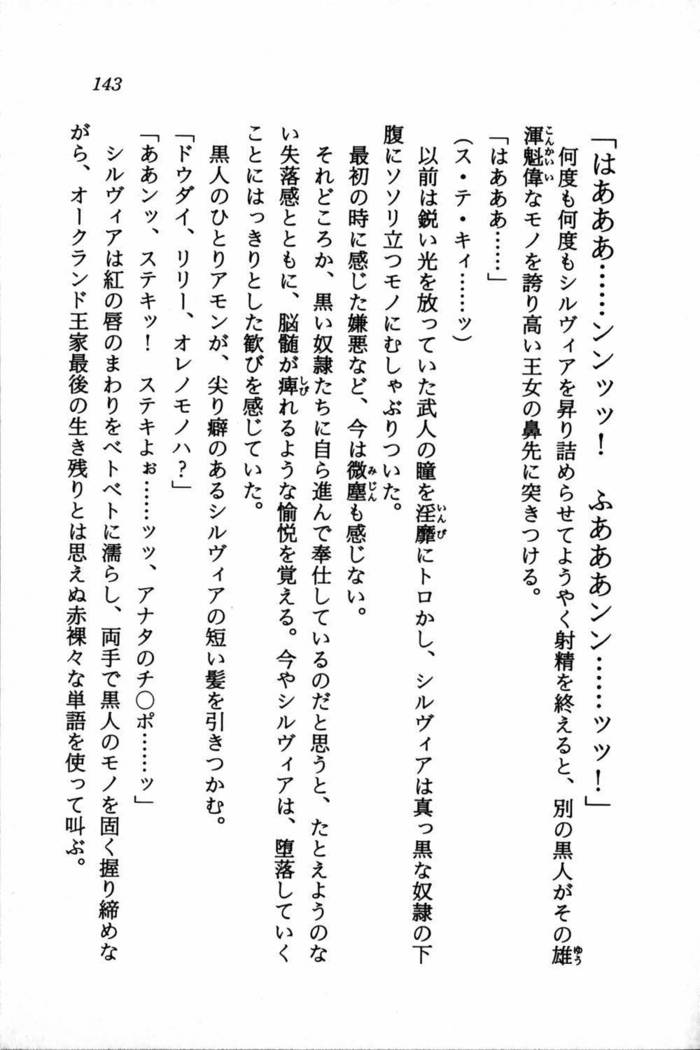 143
「はあああ……ンンッッ！　ふあああンン……ッッ！」
　何度も何度もシルヴィアを昇り詰めらせてようやく射精を終えると、別の黒人がその雄
渾魁偉なモノを誇り高い王女の鼻先に突きつける。
「はあああ……」
（ス・テ・キィ……ッ）
　以前は鋭い光を放っていた武人の瞳を淫靡にトロかし、シルヴィアは真っ黒な奴隷の下
腹にソソリ立つモノにむしゃぶりついた。
　最初の時に感じた嫌悪など、今は微塵も感じない。
　それどころか、黒い奴隷たちに自ら進んで奉仕しているのだと思うと、たとえようのな
い失落感とともに、脳髄が痺れるような愉悦を覚える。今やシルヴィアは、堕落していく
ことにはっきりとした歓びを感じていた。
　黒人のひとりアモンが、尖り癖のあるシルヴィアの短い髪を引きつかむ。
「ドウダイ、リリー、オレノモノハ？」
「ああンッ、ステキッ！　ステキよぉ……ッッ、アナタのチ〇ポ……ッ」
　シルヴィアは紅の唇のまわりをベトベトに濡らし、両手で黒人のモノを固く握り締めな
がら、オークランド王家最後の生き残りとは思えぬ赤裸々な単語を使って叫ぶ。